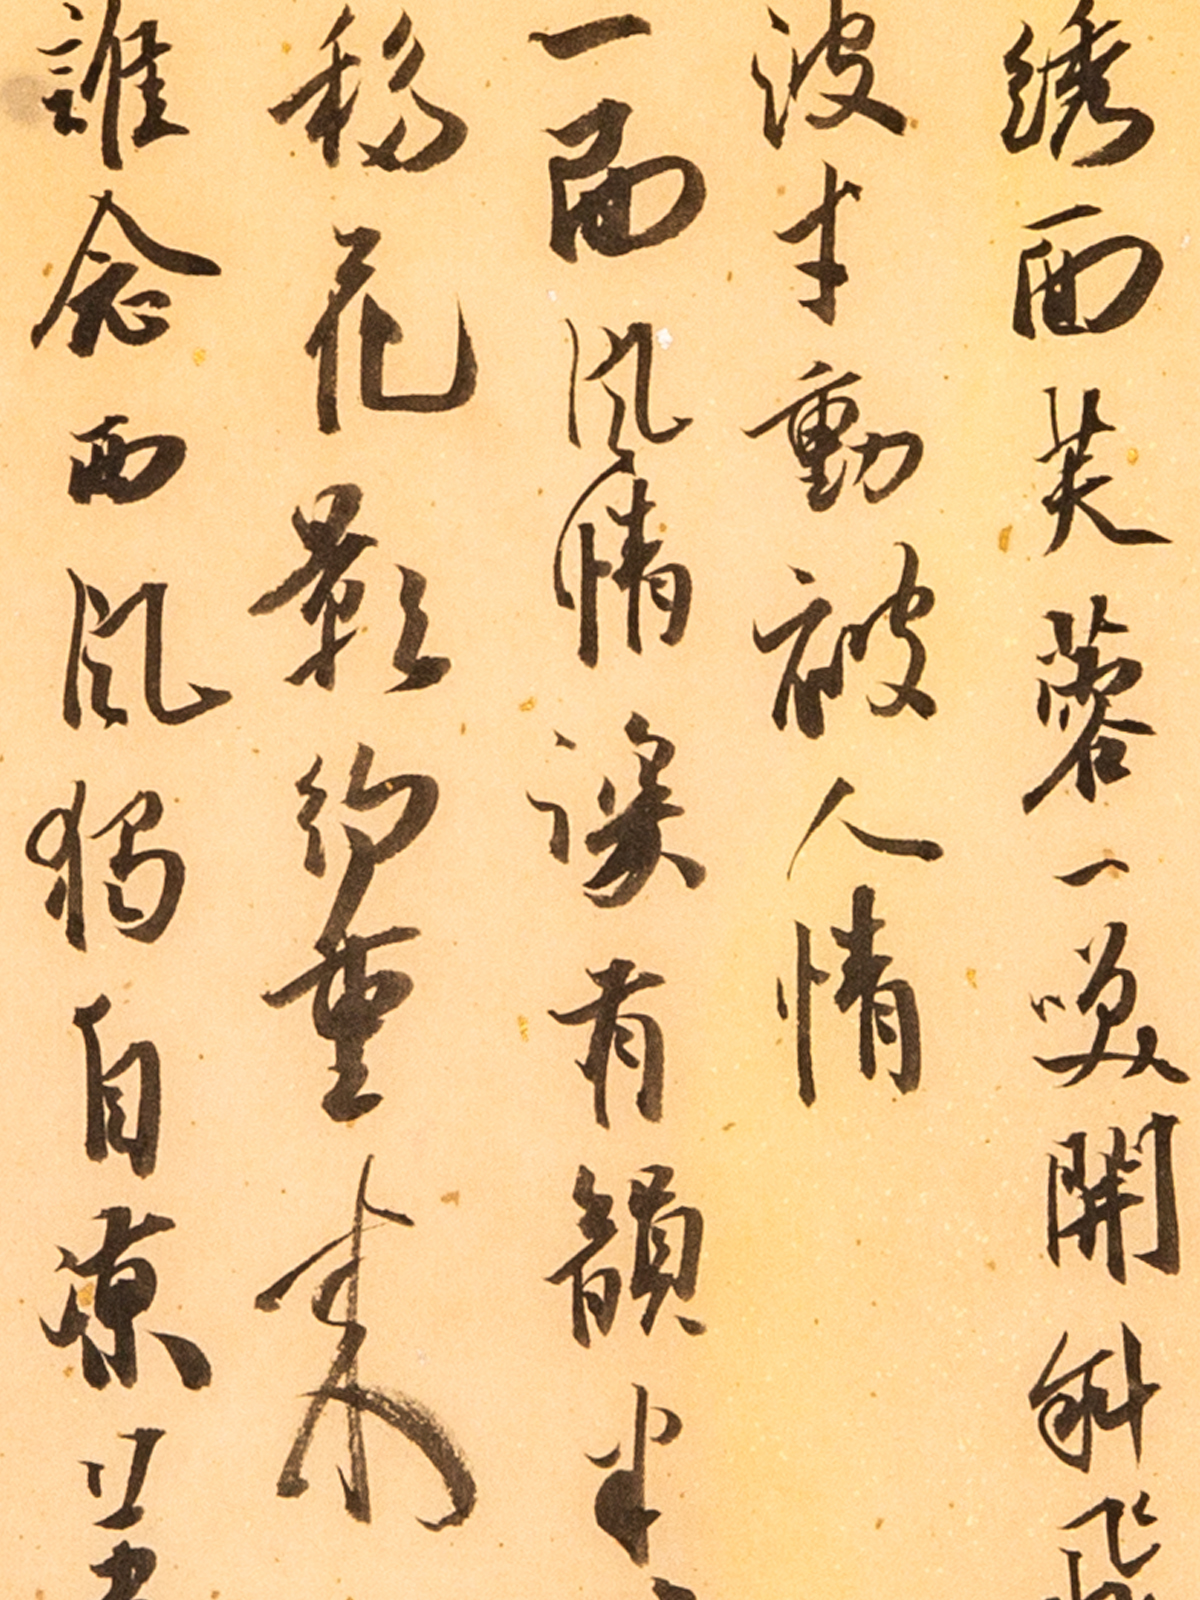 綉面芙蓉一咲開斜飛
波才動被人情
一面風情深有韻半
移花影約重来
誰念西風獨自凉